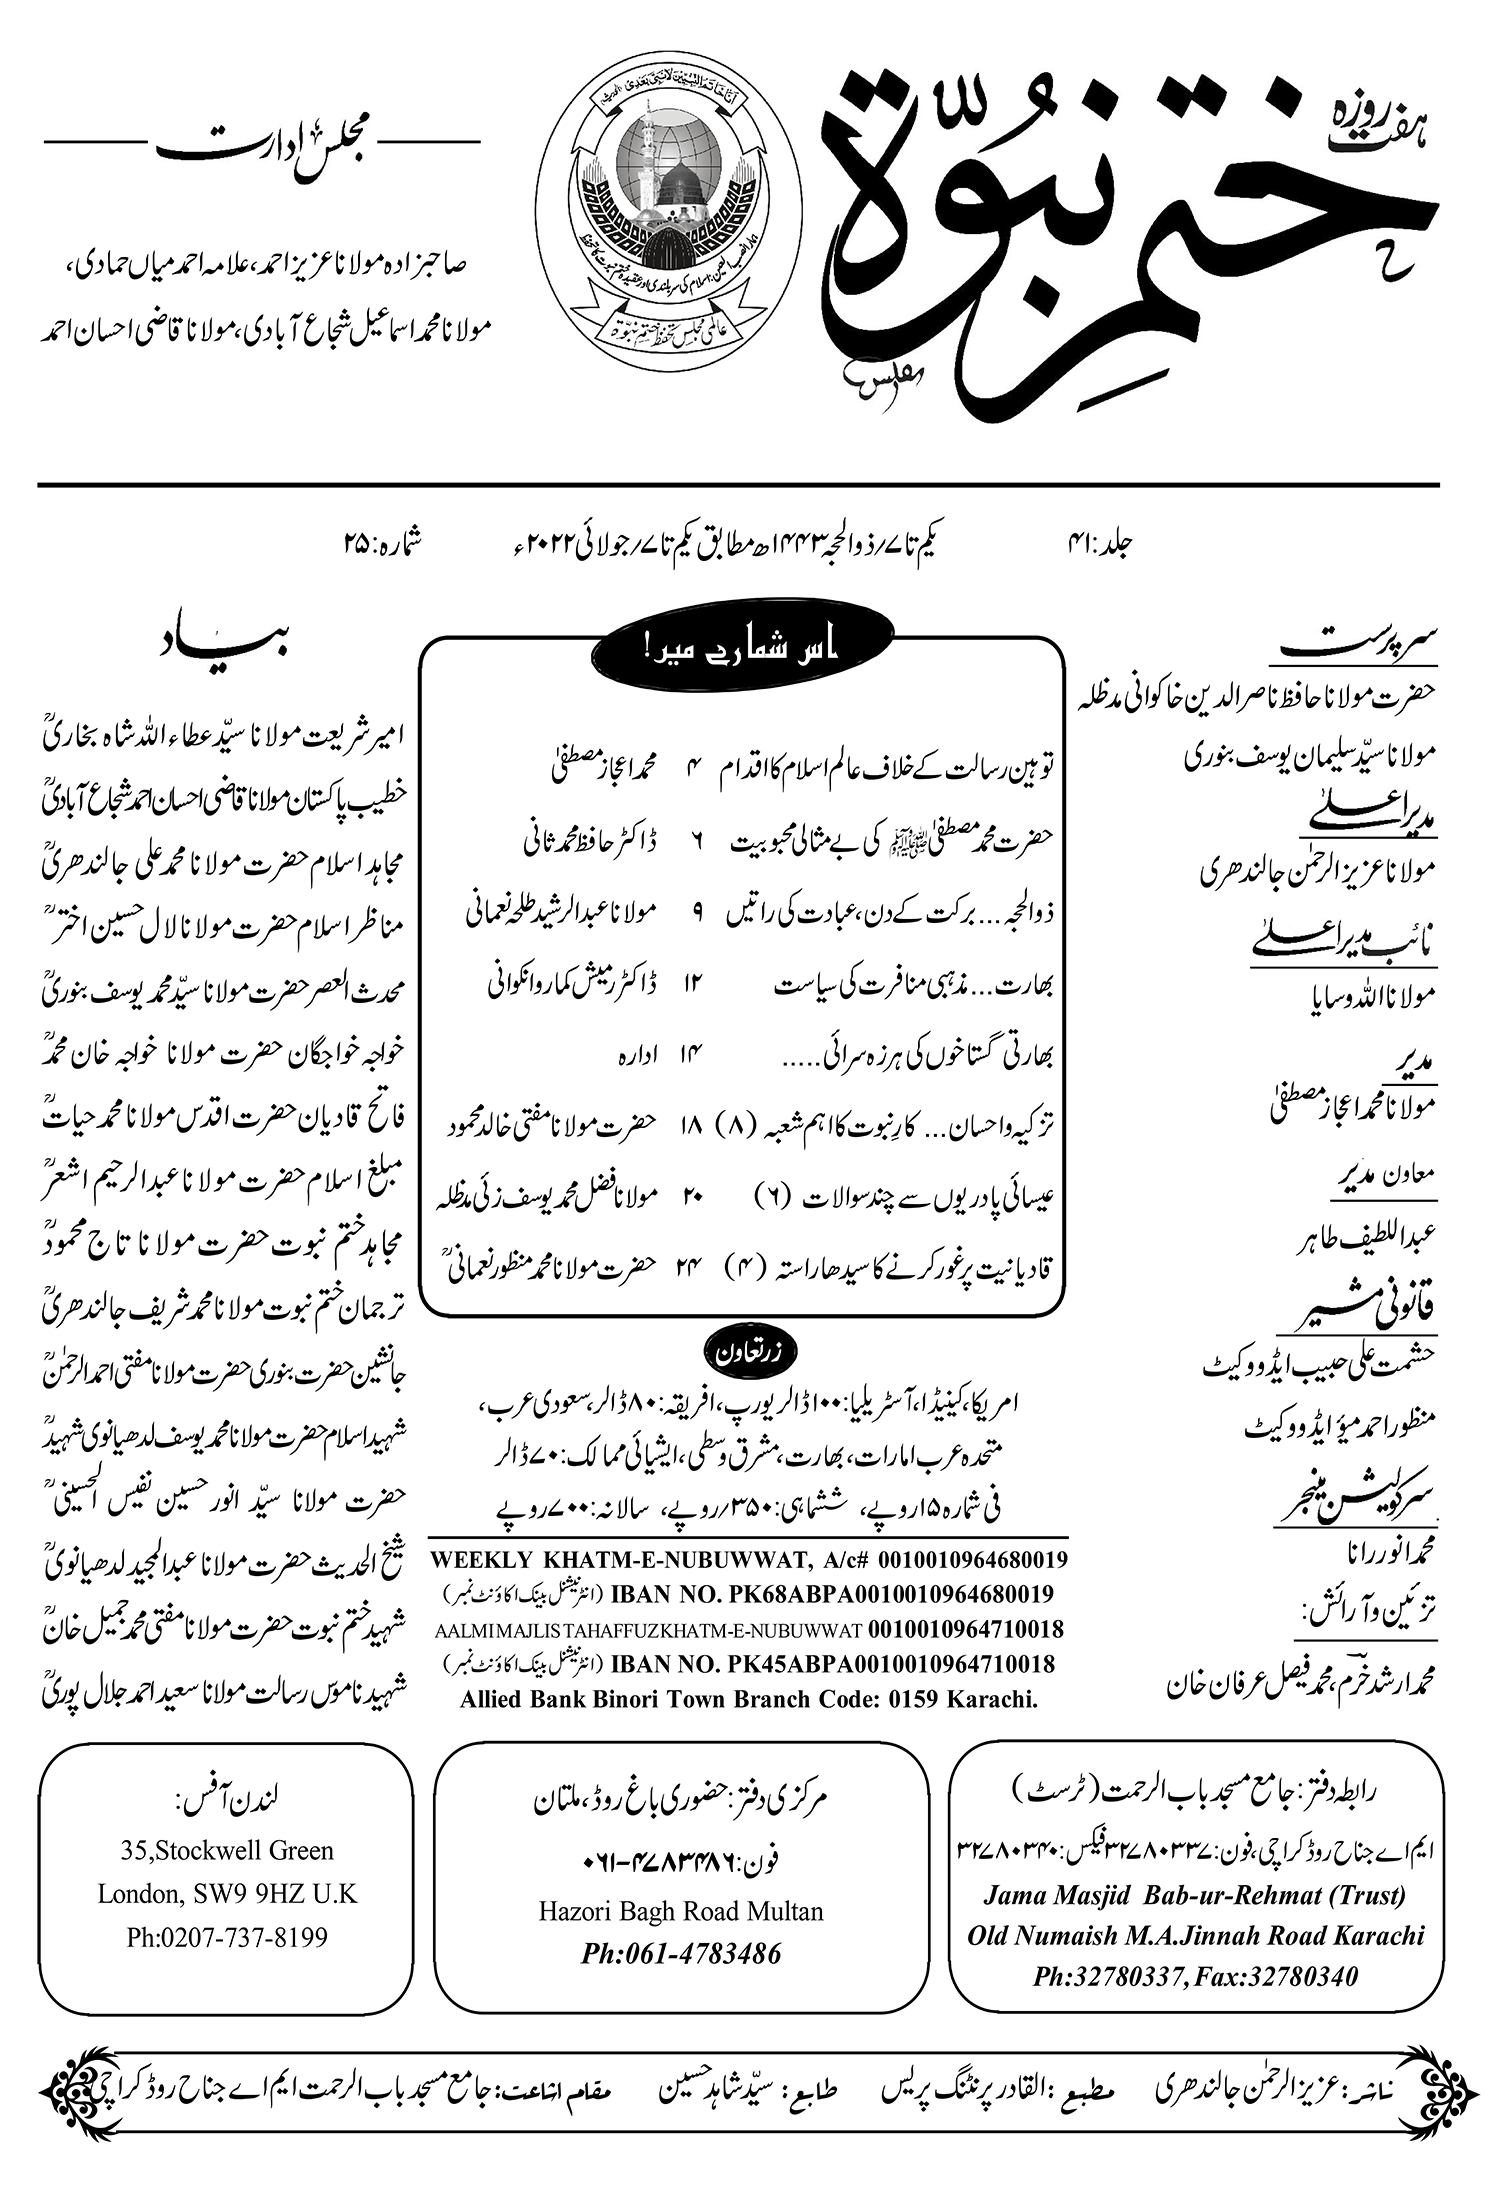 ہفت روزہ
ختم نبوّۃ
مجلس ادارت
صاحبزادہ مولانا عزیز احمد، علامہ احمد میاں حمادی،
مولانا محمد اسماعیل شجاع آبادی، مولانا قاضی احسان احمد
عالمی مجلس تحفظ ختم نبوّۃ
جلد: ۴۱
یکم تا ۷/ذوالحجہ ۱۴۴۳ھ مطابق یکم تا ۷/جولائی ۲۰۲۲ء
شمارہ: ۲۵
سرپرست
حضرت مولانا حافظ ناصر الدین خاکوانی مدظلہ
مولانا سیّد سلیمان یوسف بنوری
مدیر اعلیٰ
مولانا عزیز الرحمٰن جالندھری
نائب مدیر اعلیٰ
مولانا اللہ وسایا
مدیر
مولانا محمد اعجاز مصطفیٰ
معاون مدیر
عبداللطیف طاہر
قانونی مشیر
حشمت علی حبیب ایڈووکیٹ
منظور احمد میؤ ایڈووکیٹ
سرکولیشن منیجر
محمد انور رانا
تزئین و آرائش:
محمد ارشد خرم، محمد فیصل عرفان خان
اس شمارے میں!
توہین رسالت کے خلاف عالم اسلام کا اقدام ۴ محمد اعجاز مصطفیٰ
حضرت محمد مصطفیٰ ﷺ کی بے مثالی محبوبیت ۶ ڈاکٹر حافظ محمد ثانی
ذوالحجہ... برکت کے دن، عبادت کی راتیں ۹ مولانا عبدالرشید طلحہ نعمانی
بھارت... مذہبی منافرت کی سیاست ۱۲ ڈاکٹر رمیش کمار وانکوانی
بھارتی گستاخوں کی ہرزہ سرائی..... ۱۴ ادارہ
تزکیہ و احسان... کارِ نبوت کا اہم شعبہ (۸) ۱۸ حضرت مولانا مفتی خالد محمود
عیسائی پادریوں سے چند سوالات (۶) ۲۰ مولانا فضل محمد یوسف زئی مدظلہ
قادیانیت پر غور کرنے کا سیدھا راستہ (۴) ۲۴ حضرت مولانا محمد منظور نعمانیؒ
زرتعاون
امریکا، کینیڈا، آسٹریلیا: ۱۰۰ ڈالر یورپ، افریقہ: ۸۰ ڈالر، سعودی عرب،
متحدہ عرب امارات، بھارت، مشرق وسطی، ایشیائی ممالک: ۷۰ ڈالر
فی شمارہ ۱۵ روپے، ششماہی: ۳۵۰/روپے، سالانہ: ۷۰۰ روپے
WEEKLY KHATM-E-NUBUWWAT, A/c# 0010010964680019
(انٹرنیشنل بینک اکاؤنٹ نمبر) IBAN NO. PK68ABPA0010010964680019
AALMI MAJLIS TAHAFFUZ KHATM-E-NUBUWWAT 0010010964710018
(انٹرنیشنل بینک اکاؤنٹ نمبر) IBAN NO. PK45ABPA0010010964710018
Allied Bank Binori Town Branch Code: 0159 Karachi.
بیاد
امیر شریعت مولانا سیّد عطاء اللہ شاہ بخاریؒ
خطیب پاکستان مولانا قاضی احسان احمد شجاع آبادیؒ
مجاہد اسلام حضرت مولانا محمد علی جالندھریؒ
مناظر اسلام حضرت مولانا لال حسین اخترؒ
محدث العصر حضرت مولانا سیّد محمد یوسف بنوریؒ
خواجہ خواجگان حضرت مولانا خواجہ خان محمدؒ
فاتح قادیان حضرت اقدس مولانا محمد حیاتؒ
مبلغ اسلام حضرت مولانا عبدالرحیم اشعرؒ
مجاہد ختم نبوت حضرت مولانا تاج محمودؒ
ترجمان ختم نبوت مولانا محمد شریف جالندھریؒ
جانشین حضرت بنوری حضرت مولانا مفتی احمد الرحمٰنؒ
شہید اسلام حضرت مولانا محمد یوسف لدھیانوی شہیدؒ
حضرت مولانا سیّد انور حسین نفیس الحسینیؒ
شیخ الحدیث حضرت مولانا عبدالمجید لدھیانویؒ
شہید ختم نبوت حضرت مولانا مفتی محمد جمیل خانؒ
شہید ناموس رسالت مولانا سعید احمد جلال پوریؒ
رابطہ دفتر: جامع مسجد باب الرحمت (ٹرسٹ)
ایم اے جناح روڈ کراچی، فون: ۳۲۷۸۰۳۳۷ فیکس: ۳۲۷۸۰۳۴۰
Jama Masjid Bab-ur-Rehmat (Trust)
Old Numaish M.A.Jinnah Road Karachi
Ph:32780337, Fax:32780340
مرکزی دفتر: حضوری باغ روڈ، ملتان
فون: ۰۶۱-۴۷۸۳۴۸۶
Hazori Bagh Road Multan
Ph:061-4783486
لندن آفس:
35,Stockwell Green
London, SW9 9HZ U.K
Ph:0207-737-8199
ناشر: عزیز الرحمٰن جالندھری مطبع: القادر پرنٹنگ پریس طابع: سیّد شاہد حسین مقام اشاعت: جامع مسجد باب الرحمت ایم اے جناح روڈ کراچی